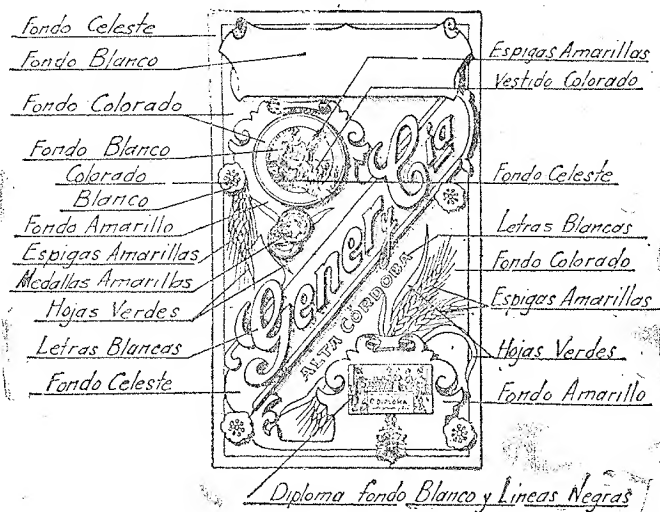 Fondo Celeste
Fondo Blanco
Fondo Colorado
Fondo Blanco
Colorado
Blanco
Fondo Amarillo
Espigas Amarillas
Medallas Amarillas
Hojas Verdes
Letras Blancas
Fondo Celeste
Gener y Cia
ALTA CÓRDOBA
CORDOBA
Espigas Amarillas
Vestido Colorado
Fondo Celeste
Letras Blancas
Fondo Colorado
Espigas Amarillas
Hojas Verdes
Fondo Amarillo
Diploma fondo Blanco y Lineas Negras